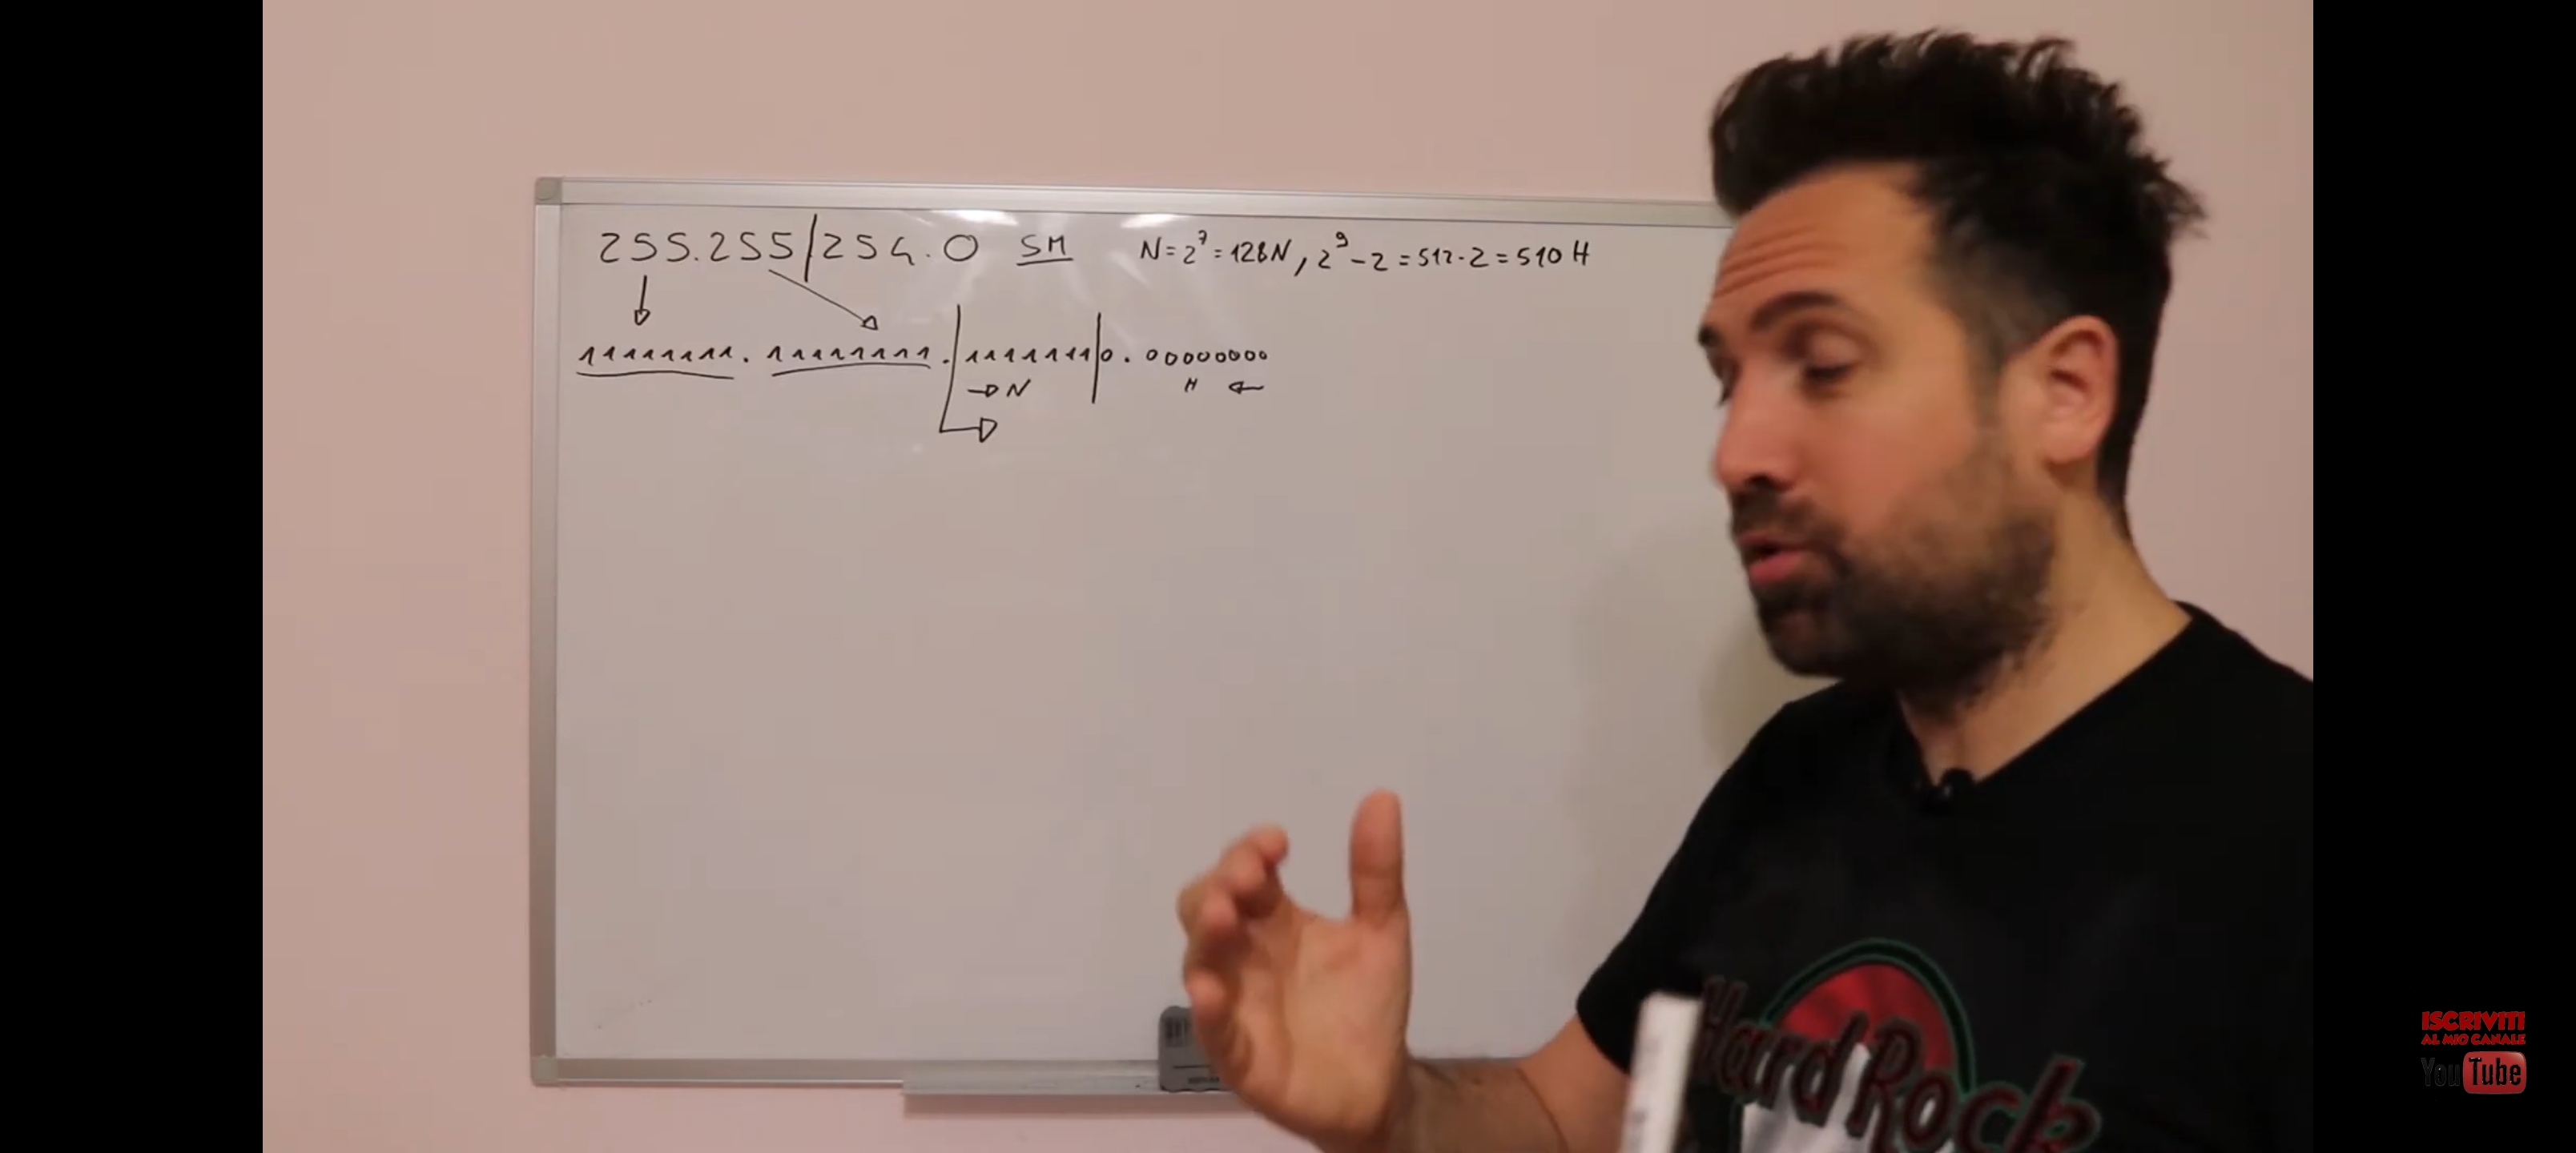 255.255/254.0 SM N=2⁷=128N, 2⁹-2=512-2=510 H
11111111.11111111.|1111111|0.00000000
→ N H ←
Hard Rock
ISCRIVITI
AL MIO CANALE
YouTube